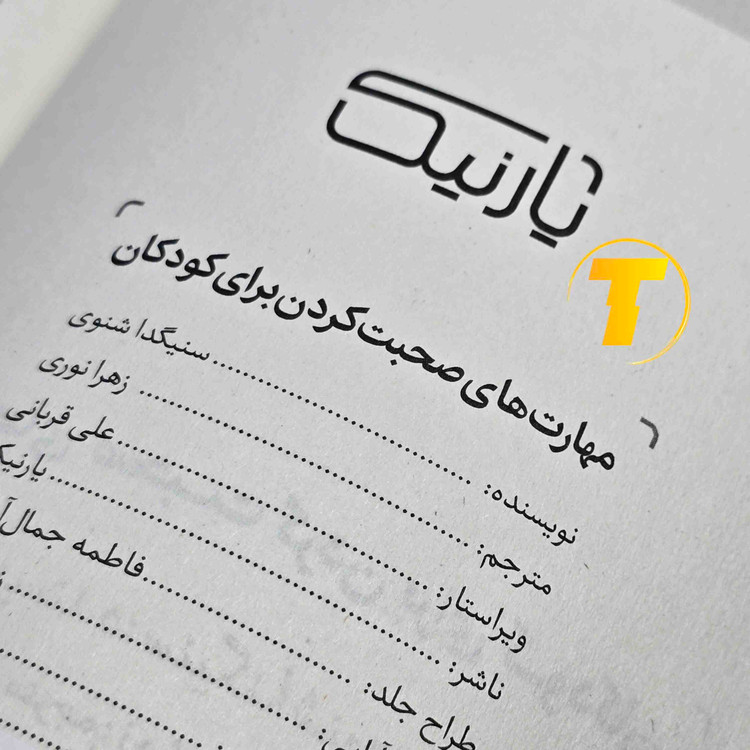 یارنیک
T
مهارت‌های صحبت کردن برای کودکان
نویسنده: ........ سنیگدا شنوی
مترجم: ........ زهرا نوری
ویراستار: ........ علی قربانی
ناشر: ........ یارنیک
طراح جلد: ........ فاطمه جمال